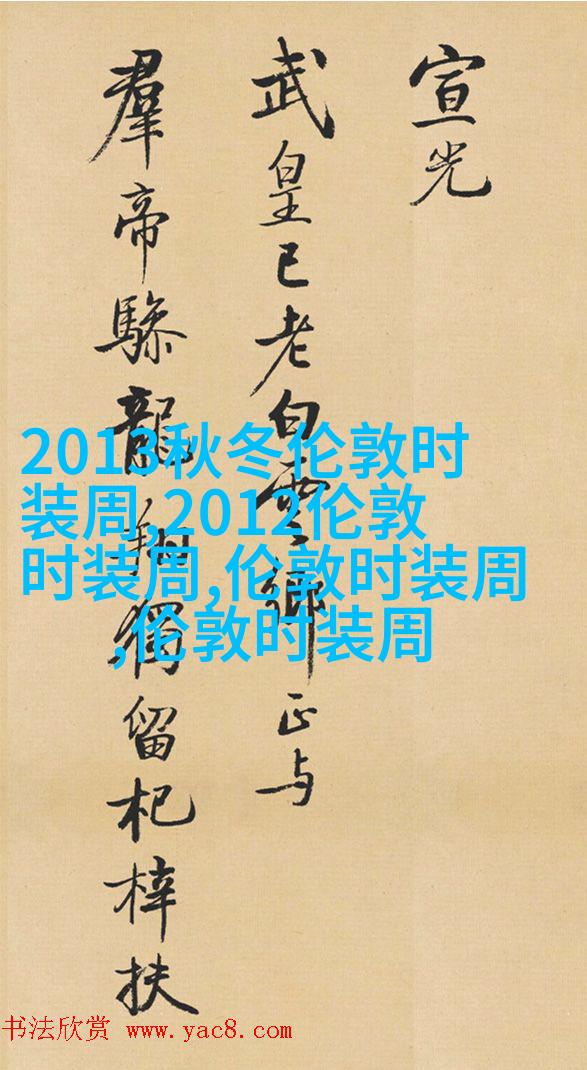 宣光
武皇已老白雲鄉正与
羣帝驂龍翔獨留杞梓扶
2013秋冬伦敦时
装周,2012伦敦
时装周,伦敦时装周
,伦敦时装周
书法欣赏 www.yac8.com